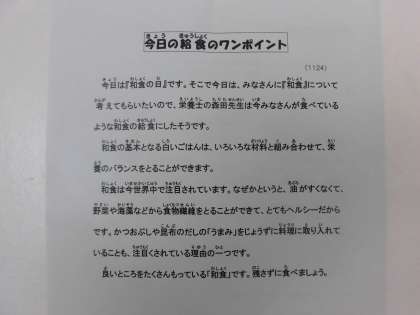 今日の給食のワンポイント
（1124）
今日は『和食の日』です。そこで今日は、みなさんに『和食』について
考えてもらいたいので、栄養士の森田先生は今みなさんが食べている
ような和食の給食にしたそうです。
和食の基本となる白いごはんは、いろいろな材料と組み合わせて、栄
養のバランスをとることができます。
和食は今世界中で注目されています。なぜかというと、油がすくなくて、
野菜や海藻などから食物繊維をとることができて、とてもヘルシーだから
です。かつおぶしや昆布のだしの「うまみ」をじょうずに料理に取り入れて
いることも、注目くされている理由の一つです。
良いところをたくさんもっている「和食」です。残さずに食べましょう。